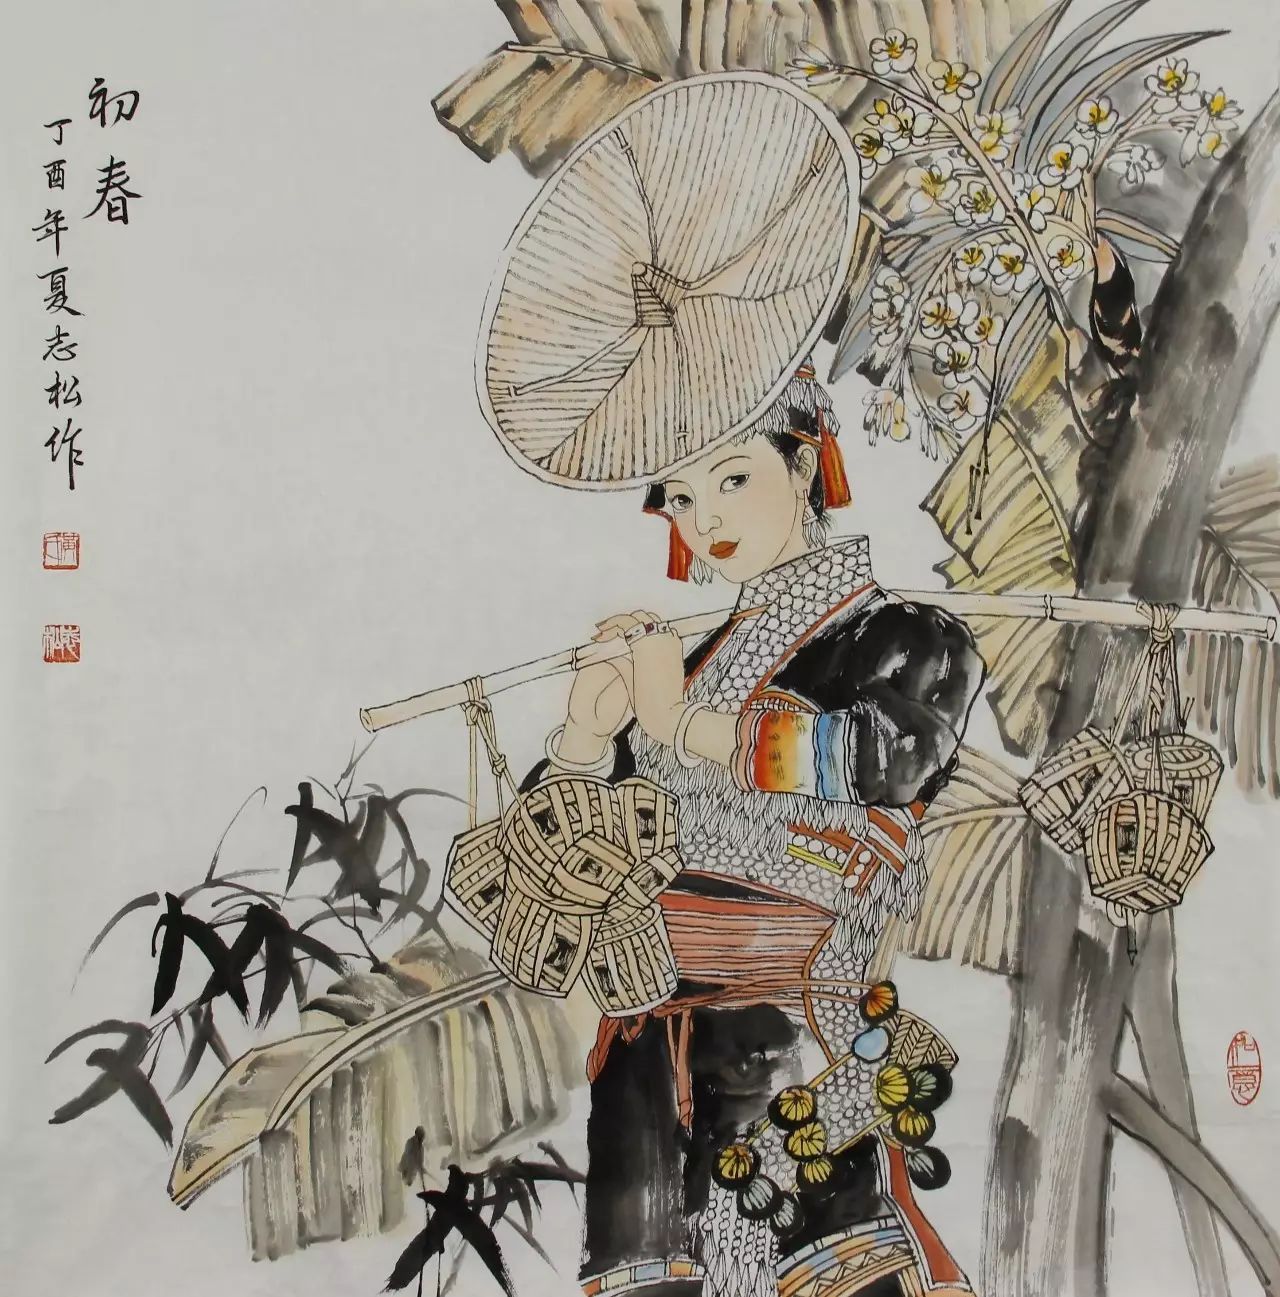 初春
丁酉年夏志松作